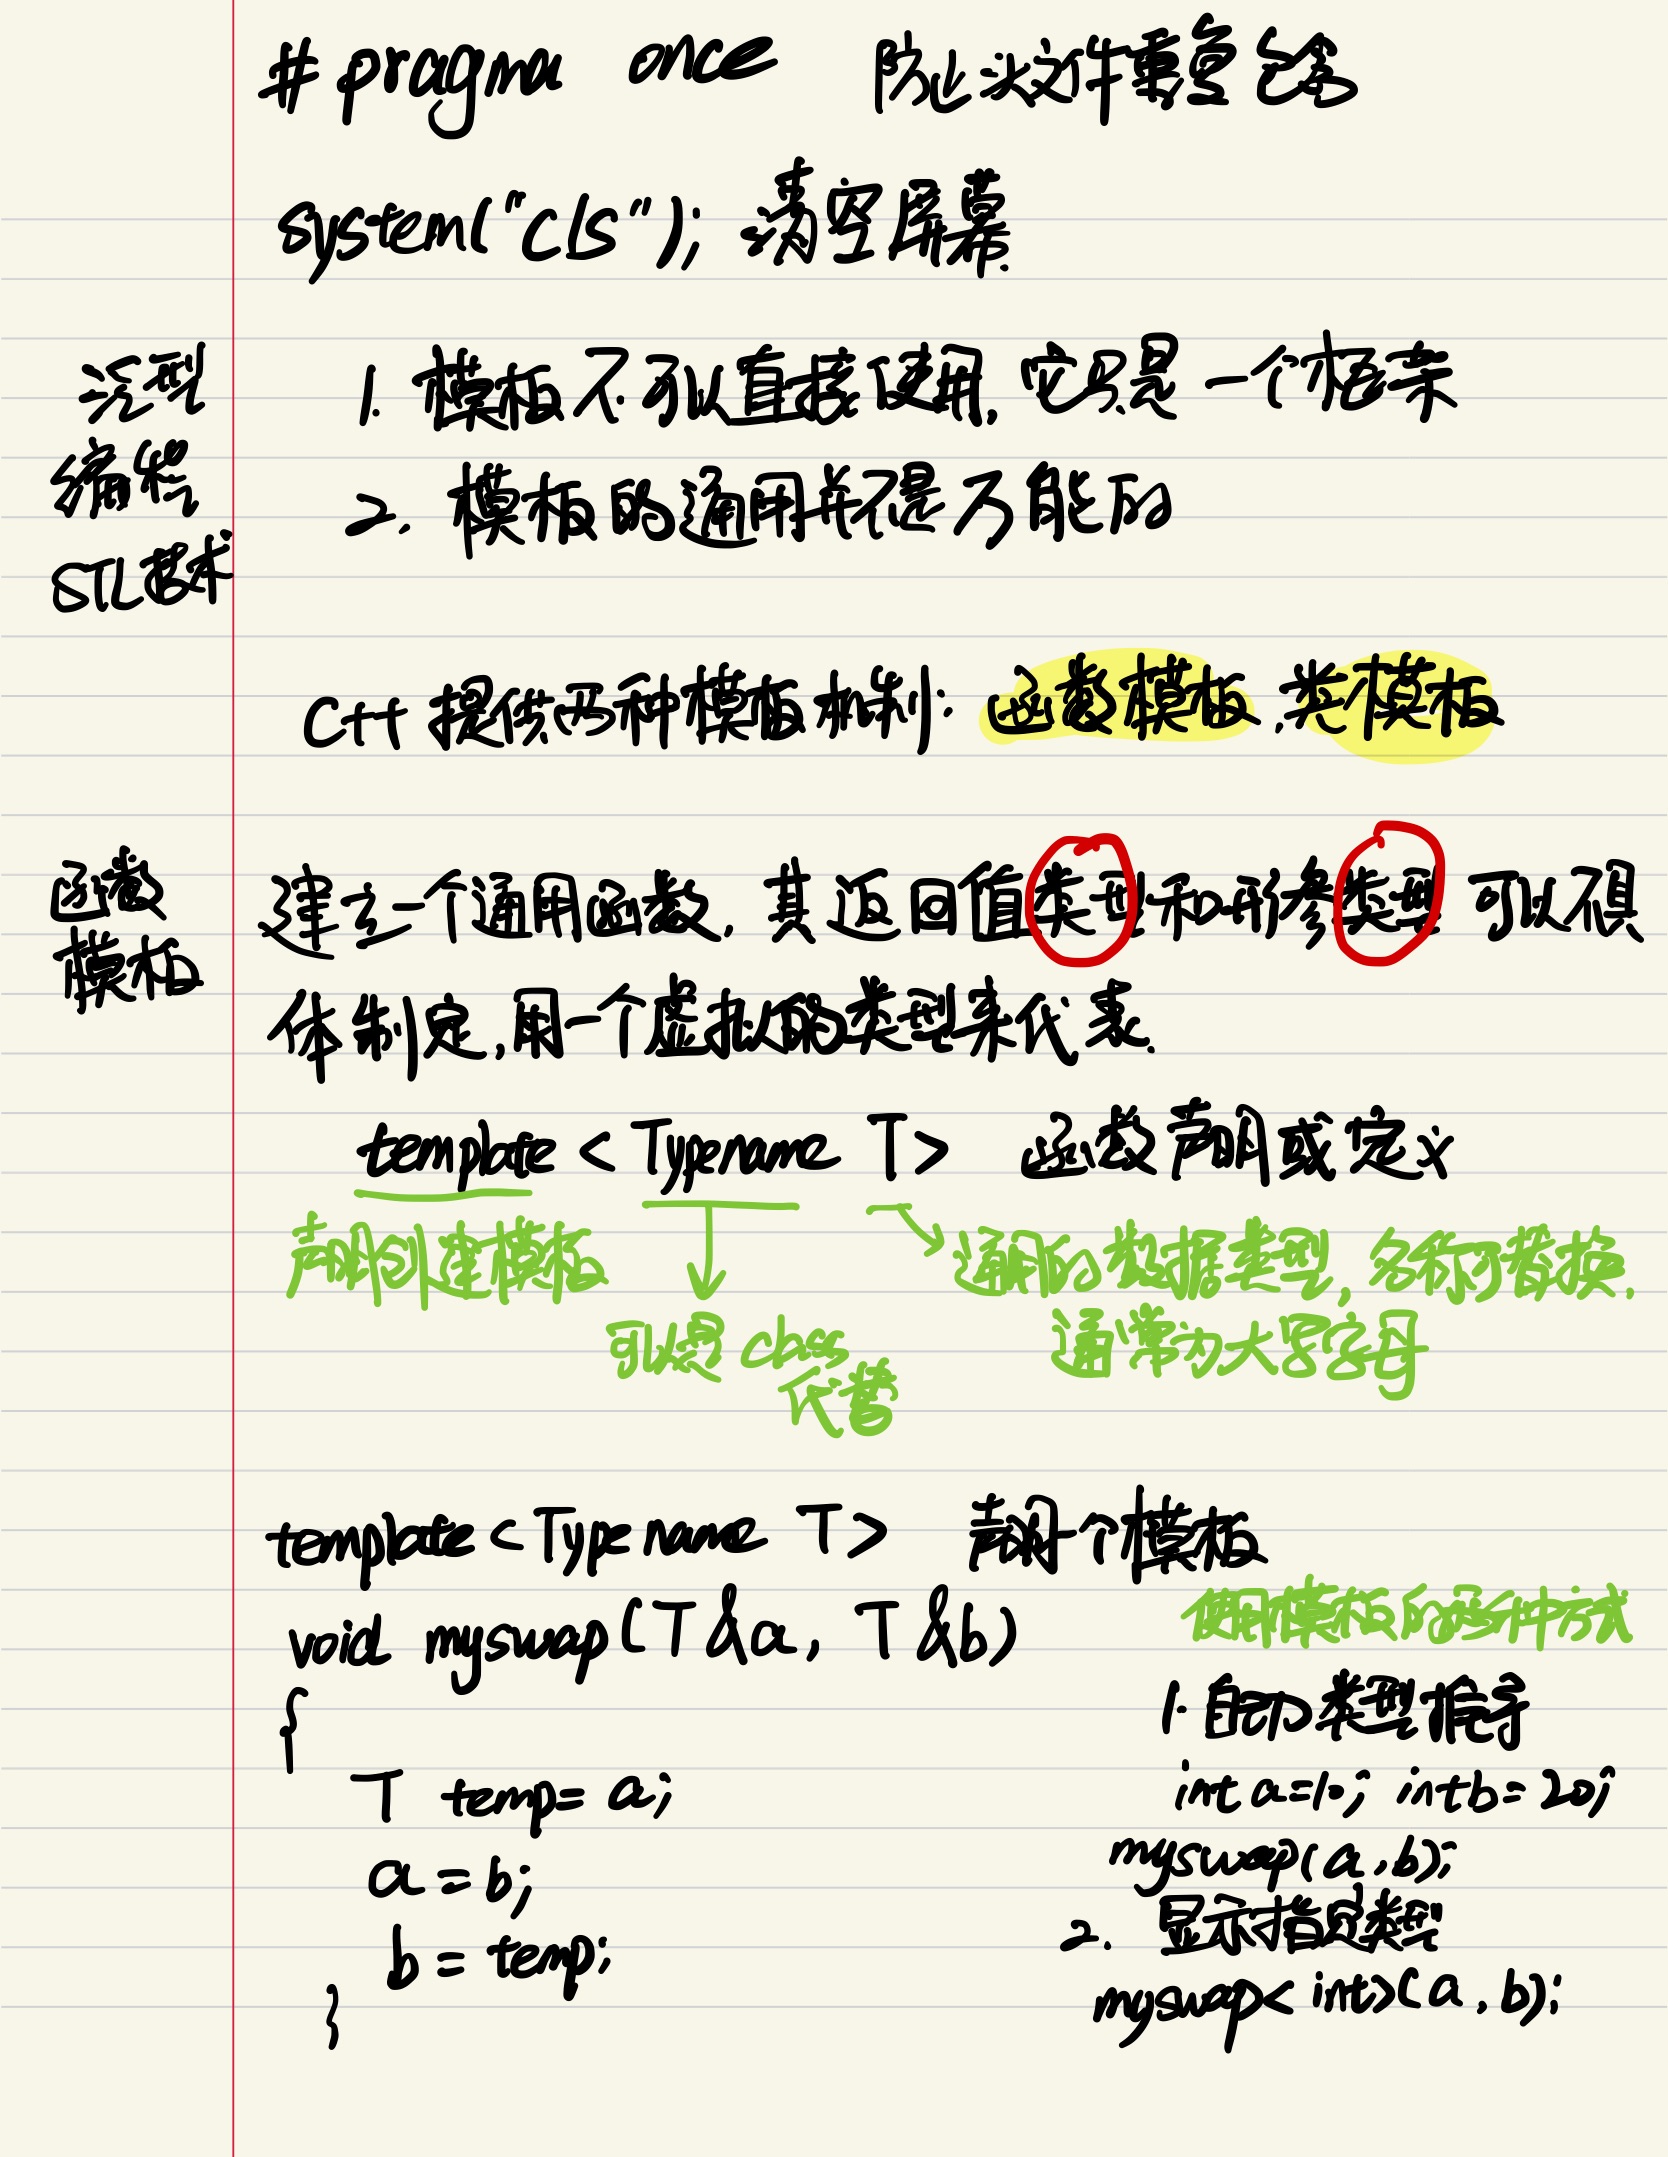 #pragma once 防止头文件重复包含
system("cls"); 清空屏幕
泛型
编程
STL技术
1. 模板不可以直接使用,它只是一个框架
2. 模板的通用并不是万能的
C++提供两种模板机制: 函数模板.类模板
函数
模板
建立一个通用函数,其返回值类型和形参类型可以不具
体制定,用一个虚拟的类型来代表.
template < Typename T> 函数声明或定义
声明创建模板
可以是class
代替
通用的数据类型,名称可替换.
通常为大写字母
template<Typename T> 声明一个模板
void myswap(T &a, T &b)
{
T temp= a;
a=b;
b= temp;
}
使用模板的两种方式
1. 自动类型推导
int a=10; int b=20;
myswap(a,b);
2. 显示指定类型
myswap<int>(a,b);